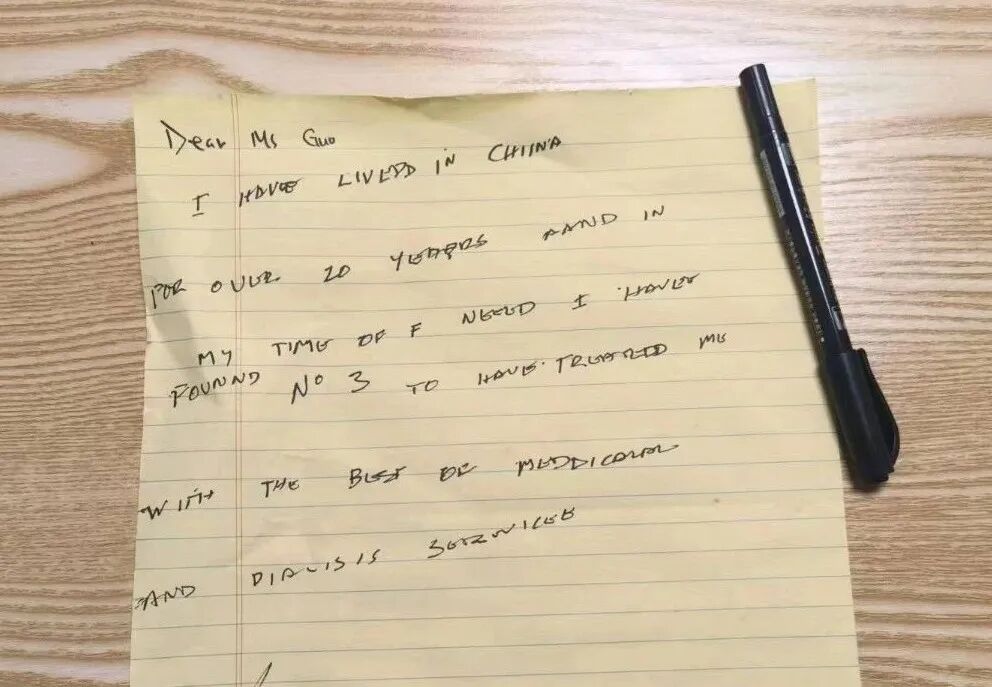 Dear Ms Guo
I HAVE LIVEDD IN CHIINA
FOR OVER 20 YEARRS AAND IN
MY TIME OF F NEEED I HAVEE
FOUNND No 3 TO HAVE TREATED ME
WITH THE BEST OF MEDDICAL
AND DIALISIS SERVICEE